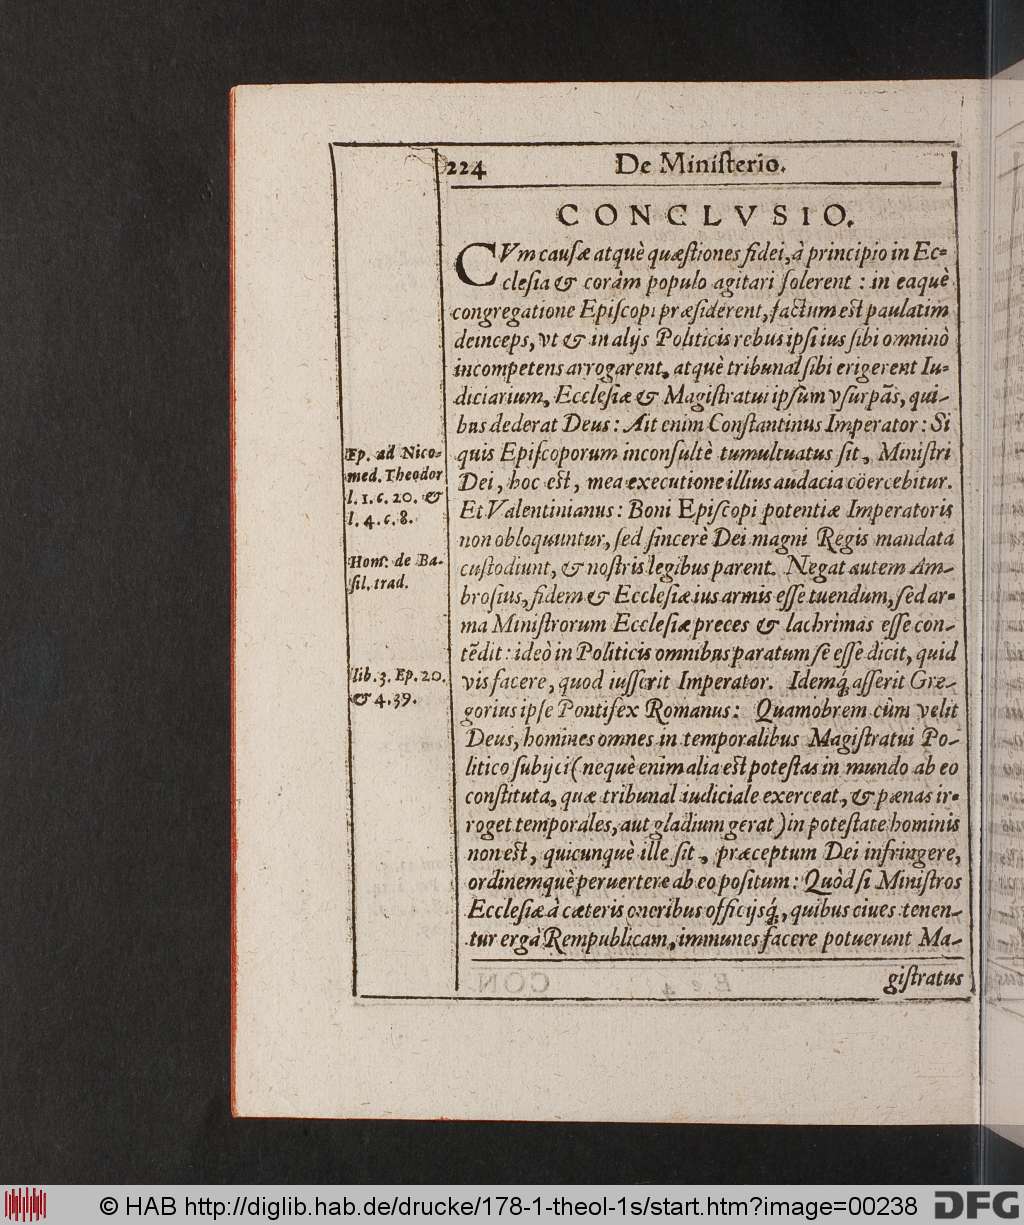 224 De Miniſterio.
CONCLVSIO.
CVm cauſæ atquè quæſtiones fidei, à principio in Ec-
cleſia & coràm populo agitari ſolerent : in eaquè
congregatione Epiſcopi præſiderent, factum est paulatim
deinceps, vt & in alijs Politicis rebus ipſi ius ſibi omninò
incompetens arrogarent, atquè tribunal ſibi erigerent Iu-
diciarium, Eccleſiæ & Magiſtratui ipſum vſurpās, qui-
bus dederat Deus : Ait enim Conſtantinus Imperator : Si
quis Epiſcoporum inconſultè tumultuatus ſit, Miniſtri
Dei, hoc est, mea executione illius audacia coërcebitur.
Et Valentinianus : Boni Epiſcopi potentiæ Imperatoris
non obloquuntur, ſed ſincerè Dei magni Regis mandata
cuſtodiunt, & noſtris legibus parent. Negat autem Am-
broſius, fidem & Eccleſiæ ius armis eſſe tuendum, ſed ar-
ma Miniſtrorum Eccleſiæ preces & lachrimas eſſe con-
tēdit : ideò in Politicis omnibus paratum ſe eſſe dicit, quid
vis facere, quod iuſſerit Imperator. Idemq́; aſſerit Gre-
gorius ipſe Pontifex Romanus : Quamobrem cùm velit
Deus, homines omnes in temporalibus Magiſtratui Po-
litico ſubijci (nequè enim alia est poteſtas in mundo ab eo
conſtituta, quæ tribunal iudiciale exerceat, & pænas ir-
roget temporales, aut gladium gerat) in poteſtate hominis
non est, quicunquè ille ſit, præceptum Dei infringere,
ordinemquè peruertere ab eo poſitum : Quòd ſi Miniſtros
Eccleſiæ à cæteris oneribus officijsq́;, quibus ciues tenen-
tur ergà Rempublicam, immunes facere potuerunt Ma-
giſtratus
Ep. ad Nico-
med. Theodor
l. 1. c. 20. &
l. 4. c. 8.
Hom. de Ba-
ſil. trad.
lib. 3. Ep. 20.
& 4. 39.
© HAB http://diglib.hab.de/drucke/178-1-theol-1s/start.htm?image=00238
DFG